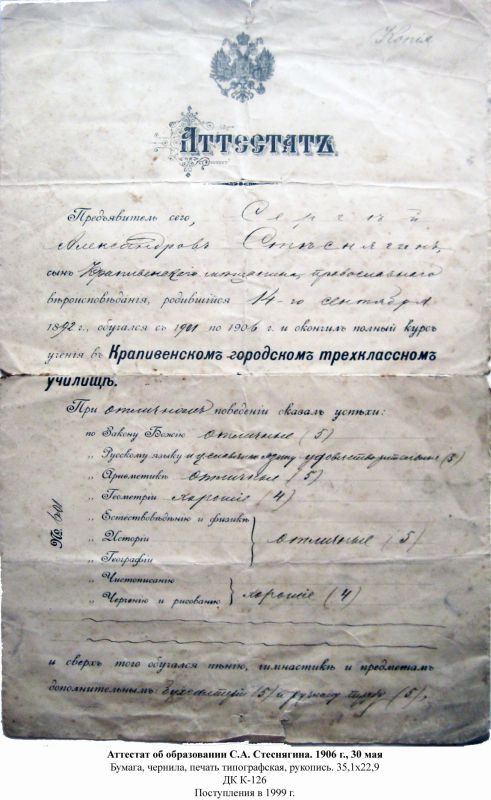 Копія
Аттестатъ.
Предъявитель сего, Сергѣй
Александровъ Стѣснягинъ,
сынъ Крапивенскаго мѣщанина православнаго
вѣроисповѣданія, родившійся 14-го сентября
1892 г., обучался съ 1901 по 1906 г. и окончилъ полный курсъ
ученія въ Крапивенскомъ городскомъ трехклассномъ
училищѣ.
При отличномъ поведеніи оказалъ успѣхи:
по Закону Божію отличные (5)
„ Русскому языку и церковно-слав. удовлетворительные (3)
„ Ариѳметикѣ отличные (5)
„ Геометріи хорошіе (4)
„ Естествовѣдѣнію и физикѣ
„ Исторіи отличные (5)
„ Географіи
„ Чистописанію
„ Черченію и рисованію хорошіе (4)
№
и сверхъ того обучался пѣнію, гимнастикѣ и предметамъ
дополнительнымъ бухгалтеріи (5) и ручному труду (5),
Аттестат об образовании С.А. Стеснягина. 1906 г., 30 мая
Бумага, чернила, печать типографская, рукопись. 35,1х22,9
ДК К-126
Поступления в 1999 г.